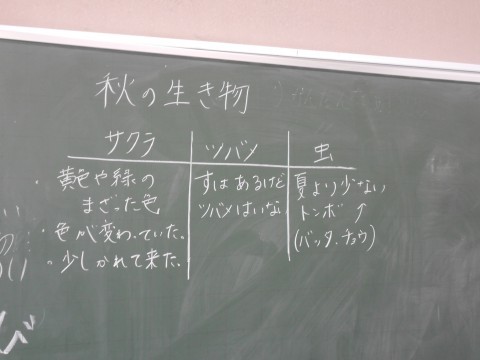 秋の生き物
サクラ ツバメ 虫
・黄色や緑の
まざった色
・色が変わっていた。
・少しかれて来た。
すはあるけど
ツバメはいない
夏より少ない
トンボ↑
(バッタ、チョウ)